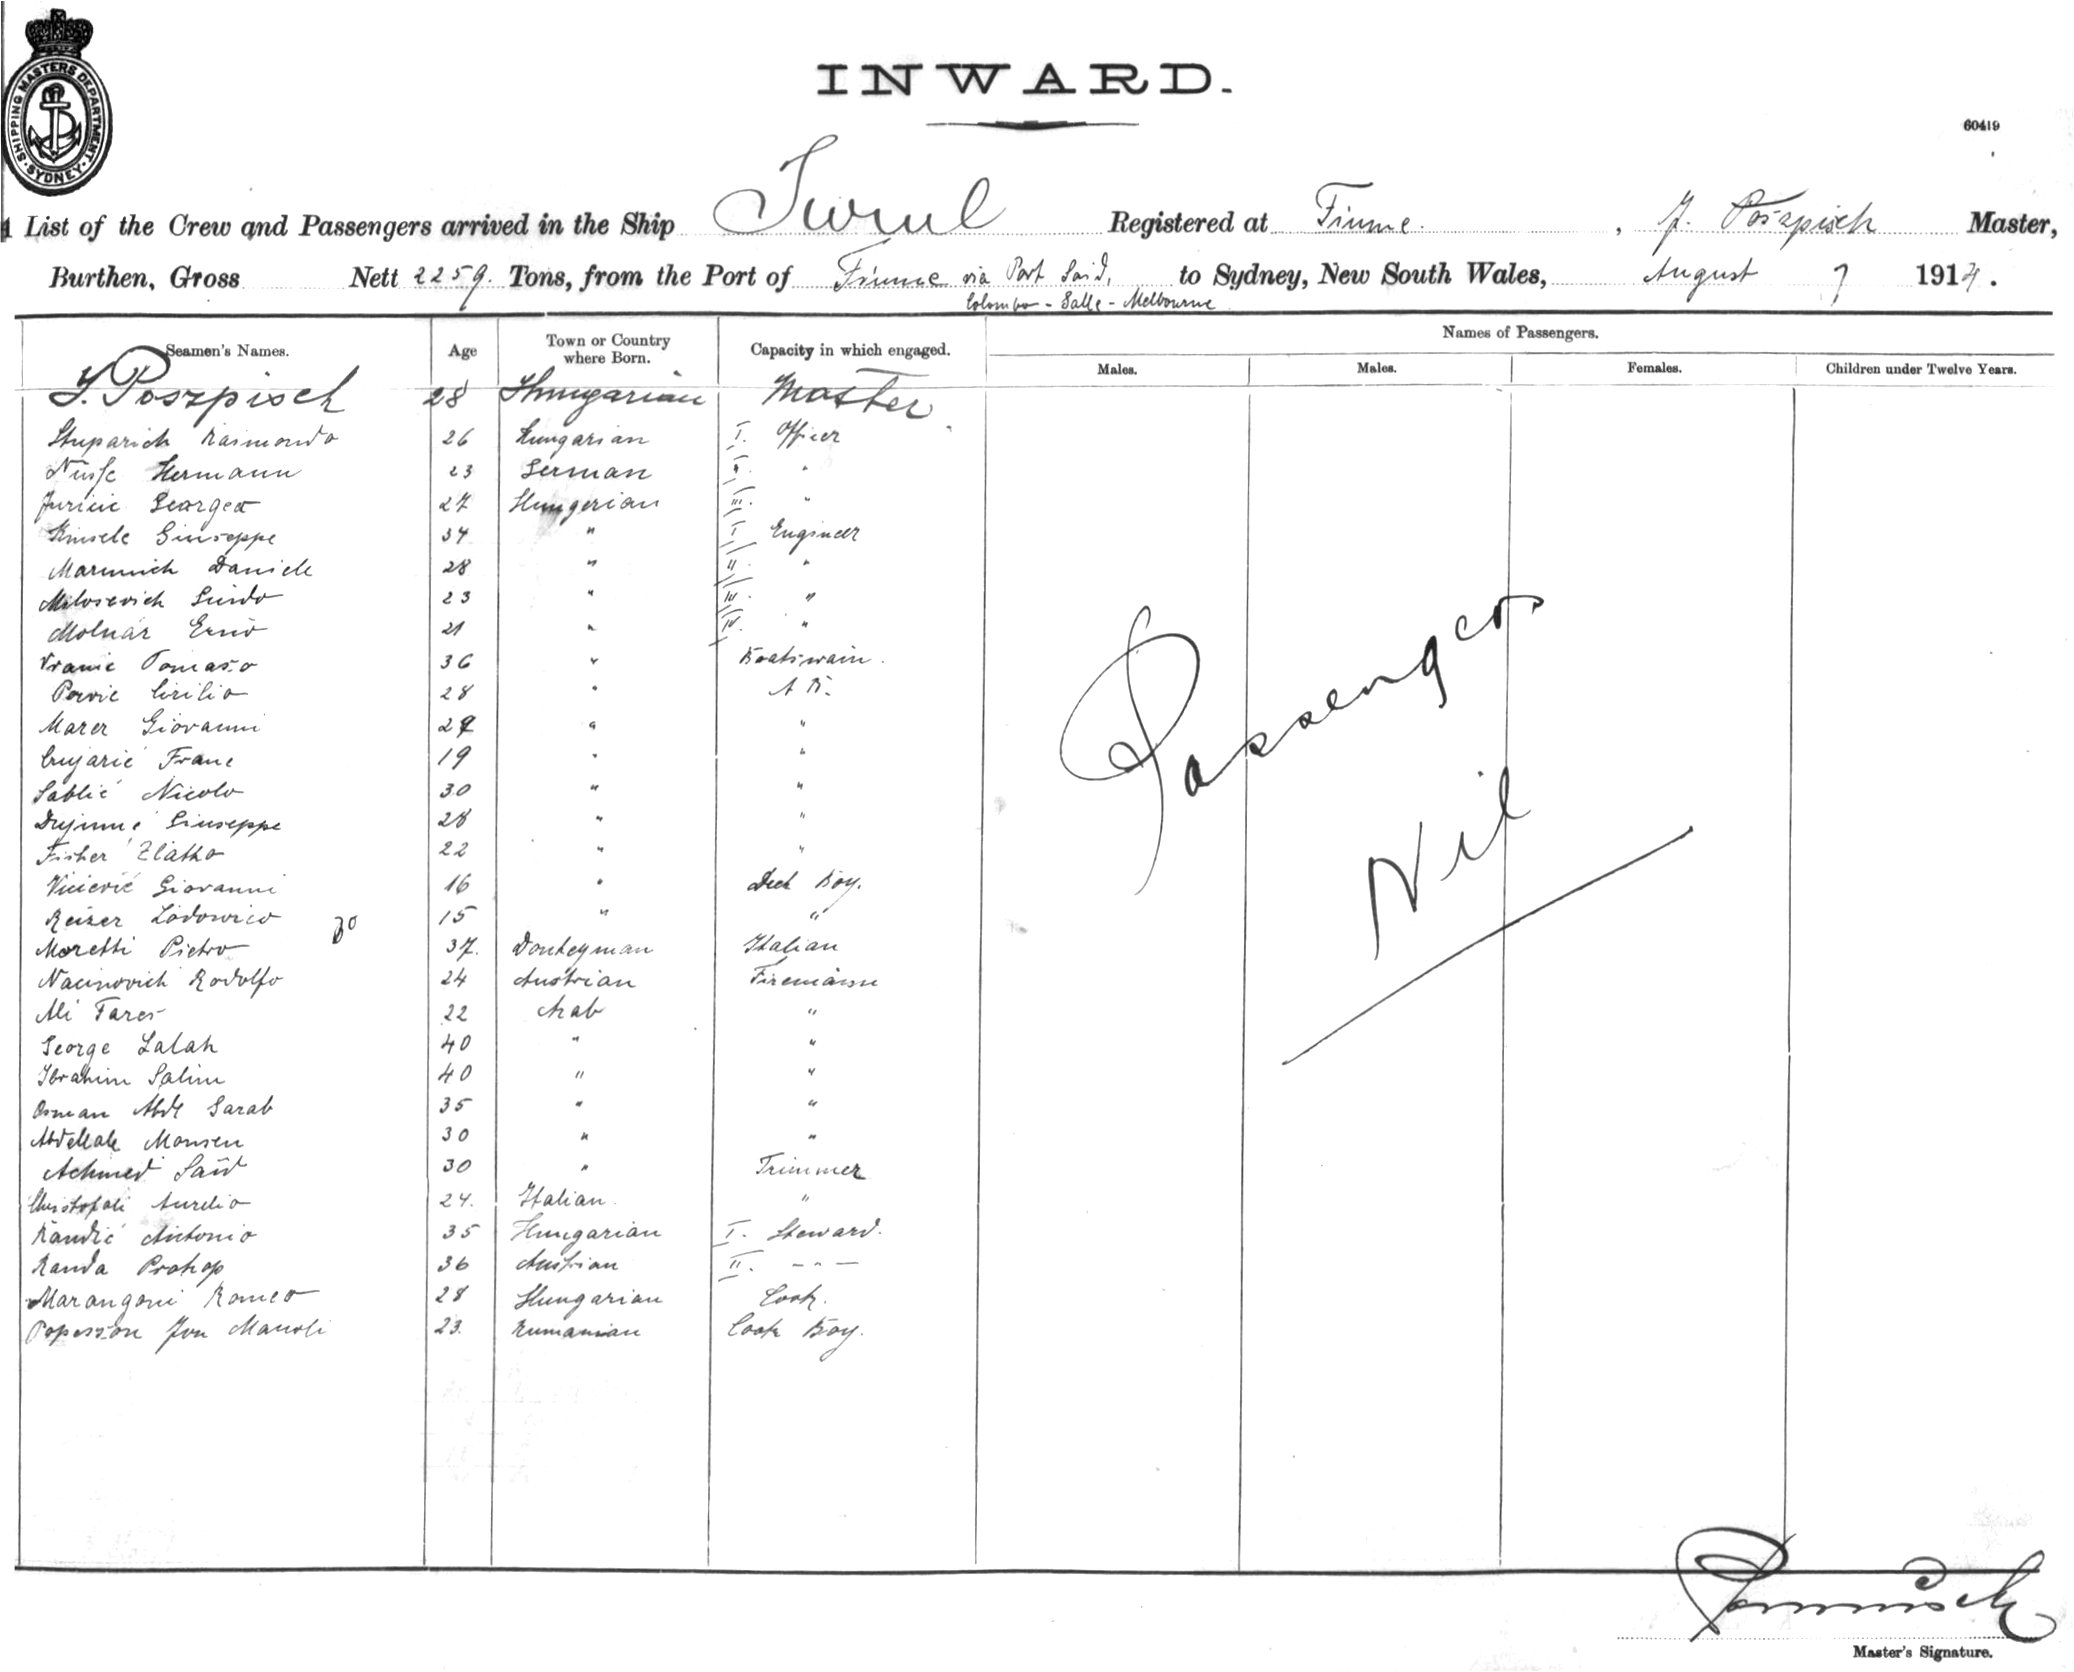 SHIPPING MASTERS DEPARTMENT. SYDNEY.
INWARD.
60419
A List of the Crew and Passengers arrived in the Ship Turul Registered at Fiume, J. Poszpisch Master,
Burthen, Gross Nett 2259. Tons, from the Port of Fiume via Port Said, to Sydney, New South Wales, August 7 1914.
Colombo - Galle - Melbourne
Names of Passengers.
Seamen's Names. Age Town or Country where Born. Capacity in which engaged. Males. Males. Females. Children under Twelve Years.
J. Poszpisch 28 Hungarian Master
Stuparich Raimondo 26 Hungarian I. Officer
Hermann 23 German II. "
Juricic Georgeo 27 Hungerian III. "
Giuseppe 34 " I Engineer
Marunich Daniele 28 " II. "
Milosevich Guido 23 " III. "
Molnár Ernö 21 " IV. "
Vranic Tomaso 36 " Boatswain.
Pervic Cirilio 28 " A B.
Marer Giovanni 27 " "
Franc 19 " "
Sablić Nicolo 30 " "
Giuseppe 28 " "
Fisher Zlatko 22 " "
Vicievic Giovanni 16 " Deck Boy.
Reizer Lodowico 15 " "
30
Moretti Pietro 37. Donkeyman Italian
Nacinovich Rodolfo 24 Austrian Firemann
Ali Fares 22 Arab "
George Lalah 40 " "
Ibrahim Salim 40 " "
Osman Abdl Garab 35 " "
Abdellah Monsen 30 " "
Achmed Said 30 " Trimmer
Aurelio 24. Italian. "
Randić Antonio 35 Hungarian I. Steward.
Randa Prokop 36 Austrian II. - " -
Marangoni Romeo 28 Hungarian Cook.
Jon Manoli 23. Rumanian Cook Boy.
Passengers
Nil
Poszpisch
Master's Signature.